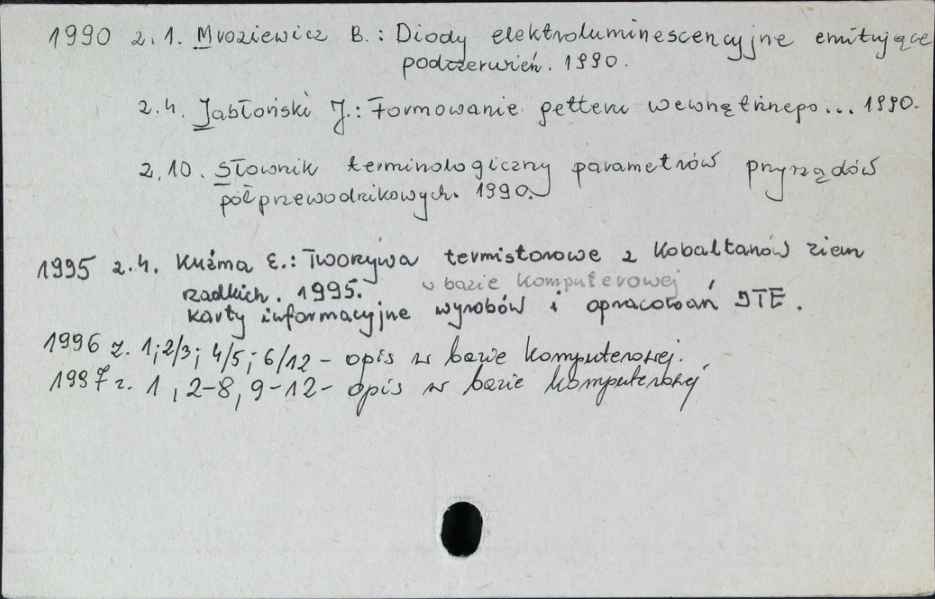 1990 z. 1. Mroziewicz B.: Diody elektroluminescencyjne emitujące
podczerwień. 1990.
z. 4. Jabłoński J.: Formowanie getteru wewnętrznego... 1990.
z. 10. Słownik terminologiczny parametrów przyrządów
półprzewodnikowych. 1990.
1995 z. 4. Kuźma E.: Tworzywa termistorowe z kobaltanów ziem
rzadkich. 1995. w bazie komputerowej
karty informacyjne wyrobów i opracowań ITE.
1996 z. 1; 2/3; 4/5; 6/12 - opis w bazie komputerowej.
1997 z. 1, 2-8, 9-12 - opis w bazie komputerowej